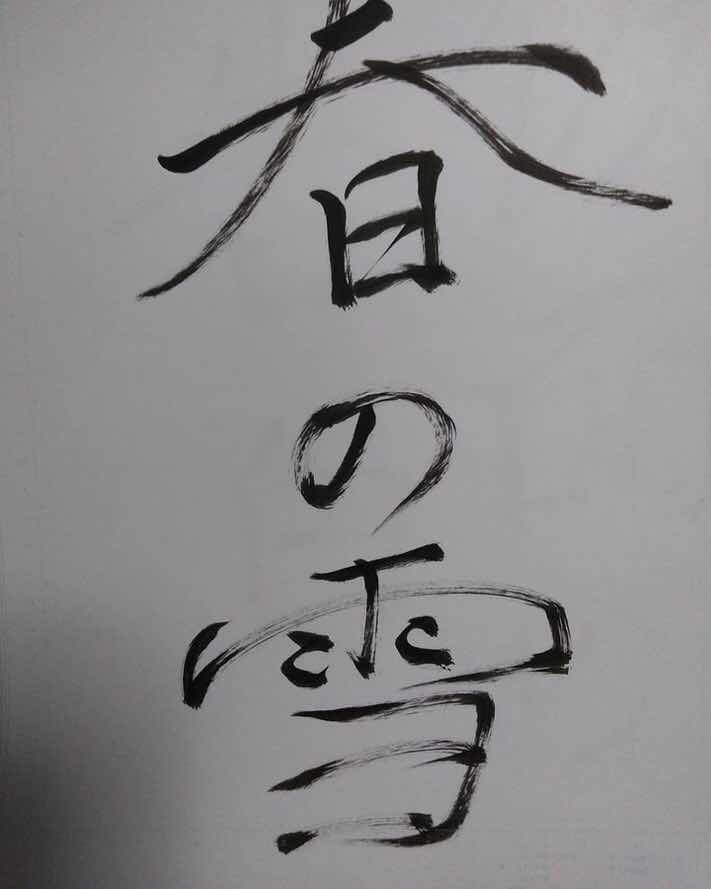 春の雪